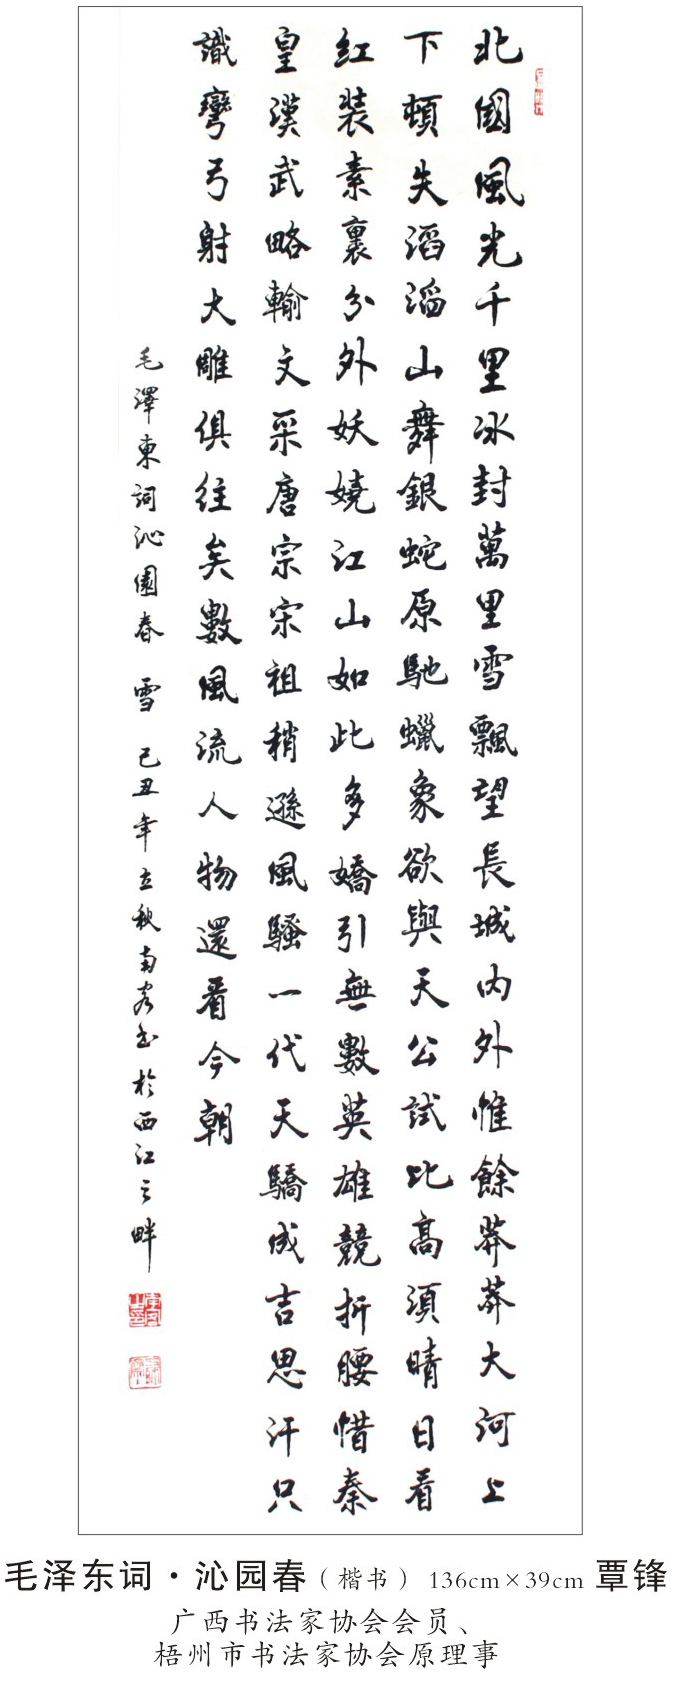 北國風光千里冰封萬里雪飄望長城內外惟餘莽莽大河上
下頓失滔滔山舞銀蛇原馳蠟象欲與天公試比高須晴日看
紅裝素裹分外妖嬈江山如此多嬌引無數英雄競折腰惜秦
皇漢武略輸文采唐宗宋祖稍遜風騷一代天驕成吉思汗只
識彎弓射大雕俱往矣數風流人物還看今朝
毛澤東詞沁園春 雪 己丑年立秋南客书於西江之畔
毛泽东词·沁园春（楷书） 136cm×39cm 覃锋
广西书法家协会会员、
梧州市书法家协会原理事